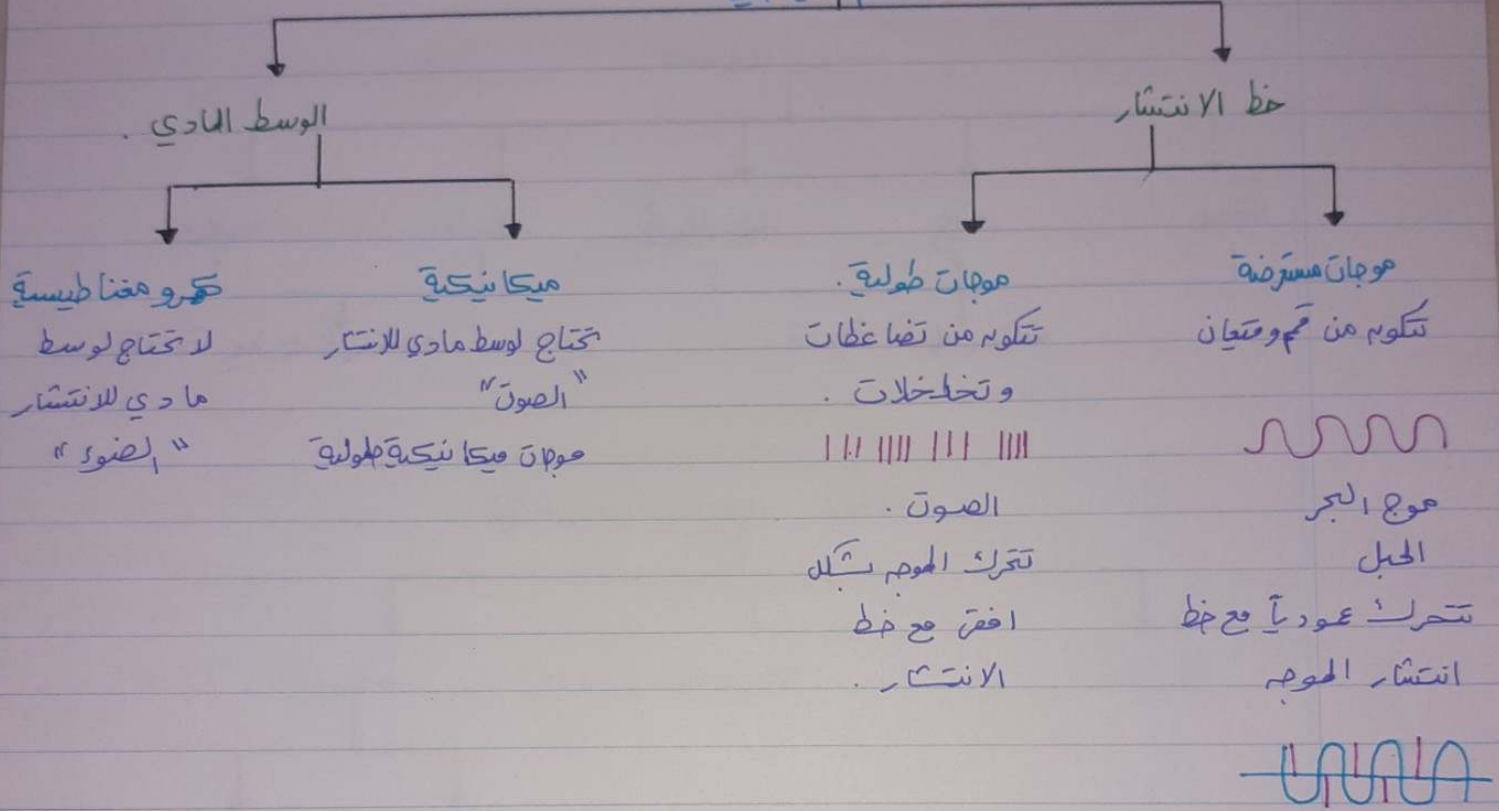 خط الانتشار
الوسط المادي .
موجات مستعرضة
تتكون من قمم وقيعان
موج البحر
الحبل
تتحرك عموديآ مع خط
انتشار الموجه
موجات طولية .
تتكون من تضاغطات
وتخلخلات .
الصوت .
تتحرك الموجه بشكل
افقي مع خط
الانتشار .
ميكانيكية
تحتاج لوسط مادي للانتشار
"الصوت"
موجات ميكانيكية طولية
كهرومغناطيسية
لا تحتاج لوسط
مادي للانتشار
"الضوء"